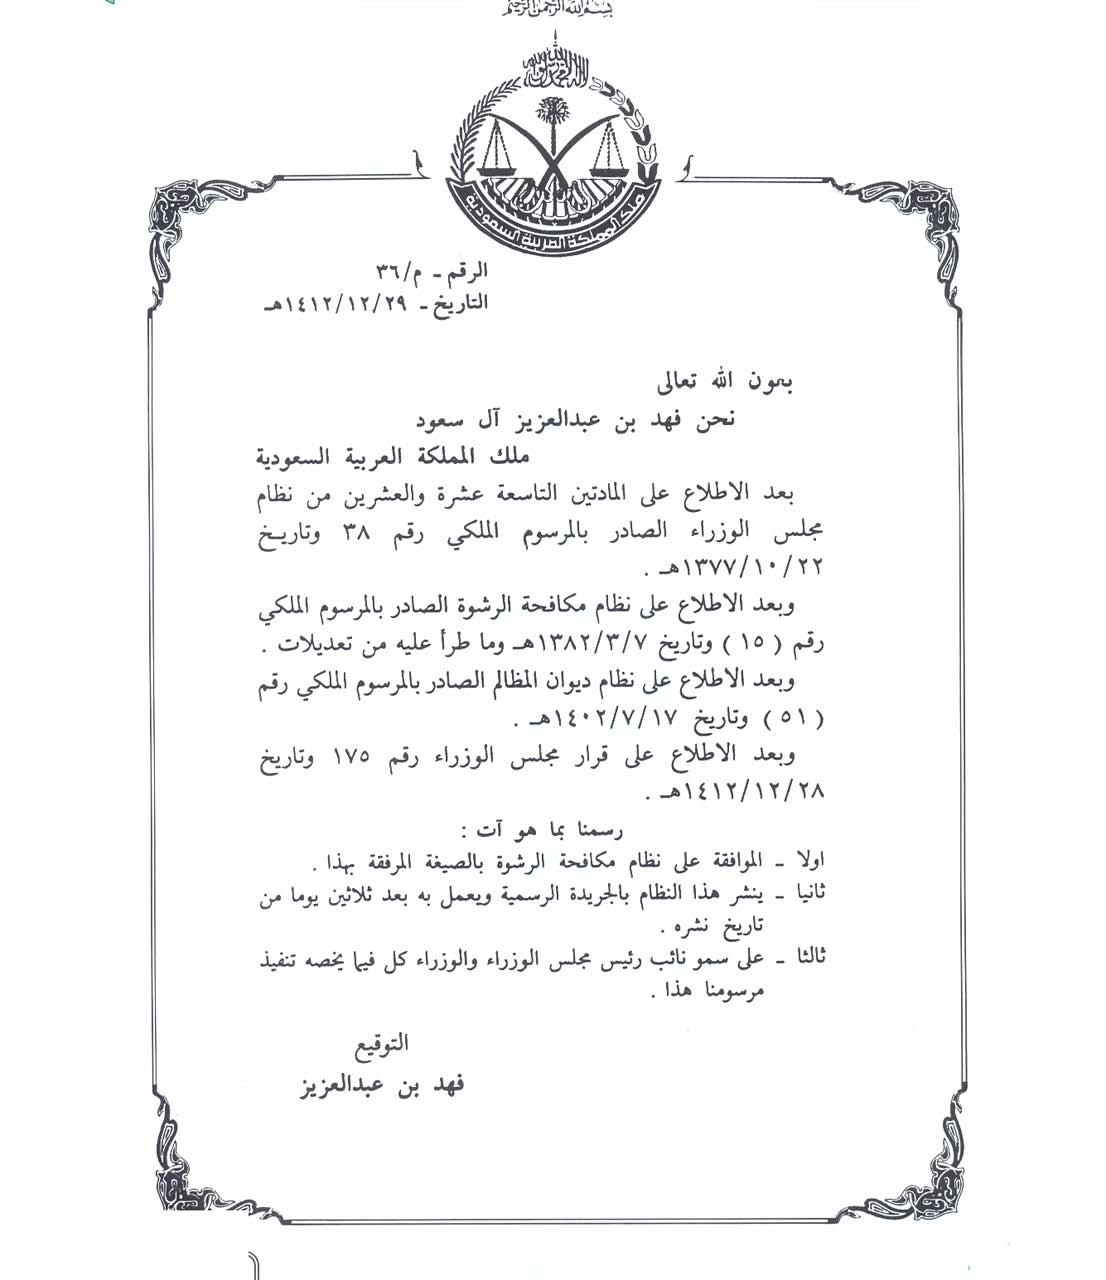 بسم الله الرحمن الرحيم
لا إله إلا الله محمد رسول الله
ملك المملكة العربية السعودية
الرقم ـ م/٣٦
التاريخ ـ ١٤١٢/١٢/٢٩هـ
بعون الله تعالى
نحن فهد بن عبدالعزيز آل سعود
ملك المملكة العربية السعودية
بعد الاطلاع على المادتين التاسعة عشرة والعشرين من نظام
مجلس الوزراء الصادر بالمرسوم الملكي رقم ٣٨ وتاريخ
١٣٧٧/١٠/٢٢هـ .
وبعد الاطلاع على نظام مكافحة الرشوة الصادر بالمرسوم الملكي
رقم ( ١٥ ) وتاريخ ١٣٨٢/٣/٧هـ وما طرأ عليه من تعديلات .
وبعد الاطلاع على نظام ديوان المظالم الصادر بالمرسوم الملكي رقم
( ٥١ ) وتاريخ ١٤٠٢/٧/١٧هـ .
وبعد الاطلاع على قرار مجلس الوزراء رقم ١٧٥ وتاريخ
١٤١٢/١٢/٢٨هـ .
رسمنا بما هو آت :
اولا ـ الموافقة على نظام مكافحة الرشوة بالصيغة المرفقة بهذا .
ثانيا ـ ينشر هذا النظام بالجريدة الرسمية ويعمل به بعد ثلاثين يوما من
تاريخ نشره .
ثالثا ـ على سمو نائب رئيس مجلس الوزراء والوزراء كل فيما يخصه تنفيذ
مرسومنا هذا .
التوقيع
فهد بن عبدالعزيز